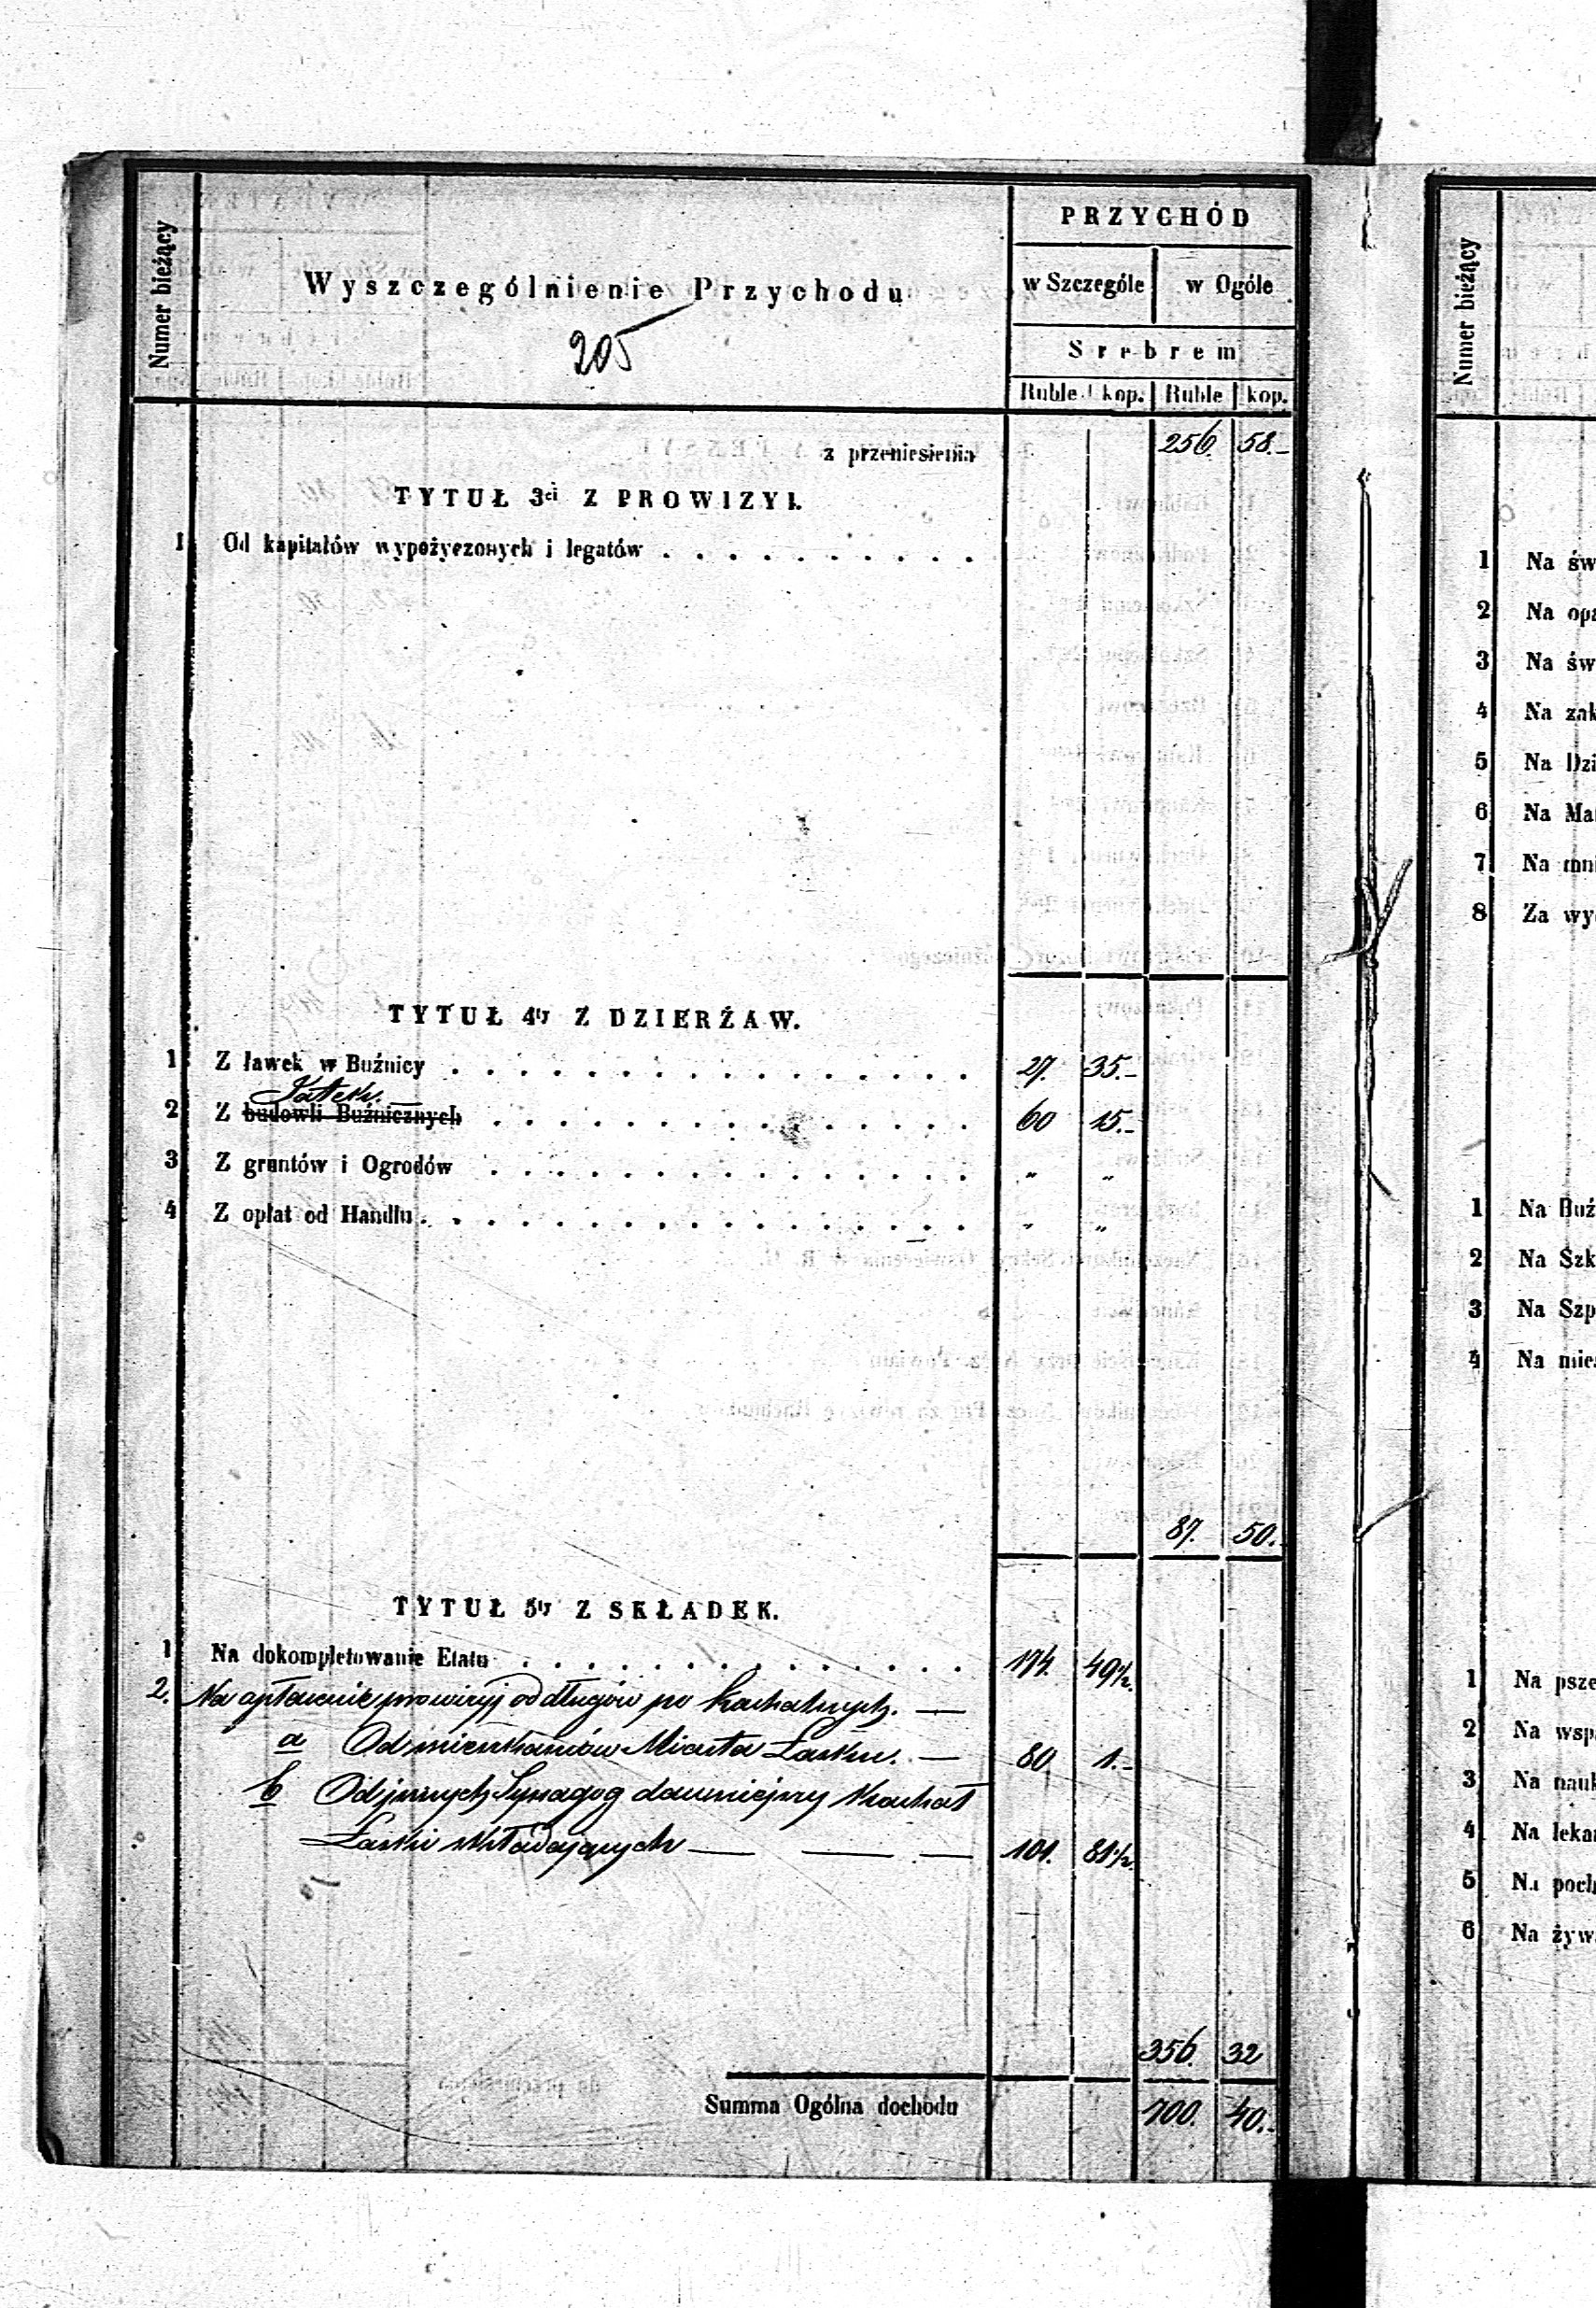 Numer bieżący
Wyszczególnienie Przychodu
205
PRZYCHÓD
w Szczególe w Ogóle
Srebrem
Ruble kop. Ruble kop.
z przeniesienia 256. 58.-
TYTUŁ 3ci Z PROWIZYI.
1 Od kapitałów wypożyczonych i legatów . . . . . . . . . .
TYTUŁ 4ty Z DZIERŻAW.
1 Z ławek w Buźnicy . . . . . . . . . . . . . . . . 27. 35.-
Jatek.
2 Z budowli Buźnicznych . . . . . . . . . . . . . . . 60 15.-
3 Z gruntów i Ogrodów . . . . . . . . . . . . . . . " "
4 Z opłat od Handlu . . . . . . . . . . . . . . . . " "
87. 50.-
TYTUŁ 5ty Z SKŁADEK.
1 Na dokompletowanie Etatu . . . . . . . . . . . . . . 174. 49½.
2. Na opłacenie prowizyj od długów po Kachalnych. —
a Od mieszkańców Miasta Łasku. — 80 1.-
b Od innych Synagog dawniejszy Kachał
Łaski składających — — — 101. 81½.
356. 32
Summa Ogólna dochodu 700. 40.-
Numer bieżący
1 Na św
2 Na opa
3 Na św
4 Na zak
5 Na Dzi
6 Na Ma
7 Na mni
8 Za wy
1 Na Buź
2 Na Szk
3 Na Szp
4 Na mie
1 Na psze
2 Na wsp
3 Na nauk
4 Na leka
5 Na poch
6 Na żyw